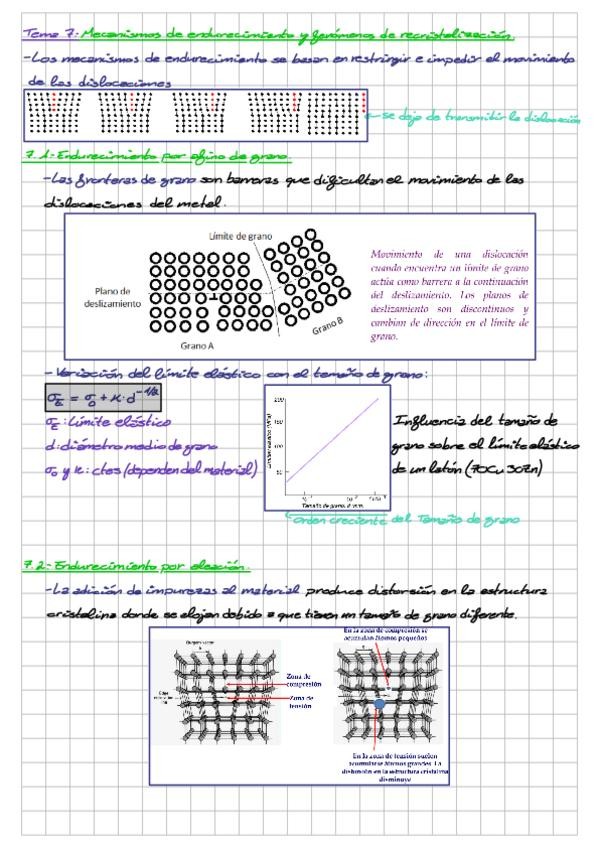 Tema 7: Mecanismos de endurecimiento y fenómenos de recristalización.
-Los mecanismos de endurecimiento se basan en restringir e impedir el movimiento
de las dislocaciones
se deja de transmitir la dislocación
7.1-Endurecimiento por afino de grano.
-Las fronteras de grano son barreras que dificultan el movimiento de las
dislocaciones del metal.
Límite de grano
Plano de
deslizamiento
Grano A
Grano B
Movimiento de una dislocación
cuando encuentra un límite de grano
actúa como barrera a la continuación
del deslizamiento. Los planos de
deslizamiento son discontinuos y
cambian de dirección en el límite de
grano.
-Variación del límite elástico con el tamaño de grano:
σE = σ0 + K·d^-1/2
σE: Límite elástico
d: diámetro medio de grano
σ0 y K: ctes (dependen del material)
200
150
100
50
Tamaño de grano, d mm.
Influencia del tamaño de
grano sobre el límite elástico
de un latón (70Cu 30Zn)
Orden creciente del Tamaño de grano
7.2-Endurecimiento por aleación.
-La adición de impurezas al material produce distorsión en la estructura
cristalina donde se alojan debido a que tienen un tamaño de grano diferente.
Burgers vector
b
Zona de
compresión
Zona de
tensión
En la zona de compresión se
acumulan átomos pequeños
En la zona de tensión suelen
acumularse átomos grandes. La
distorsión en la estructura cristalina
disminuye